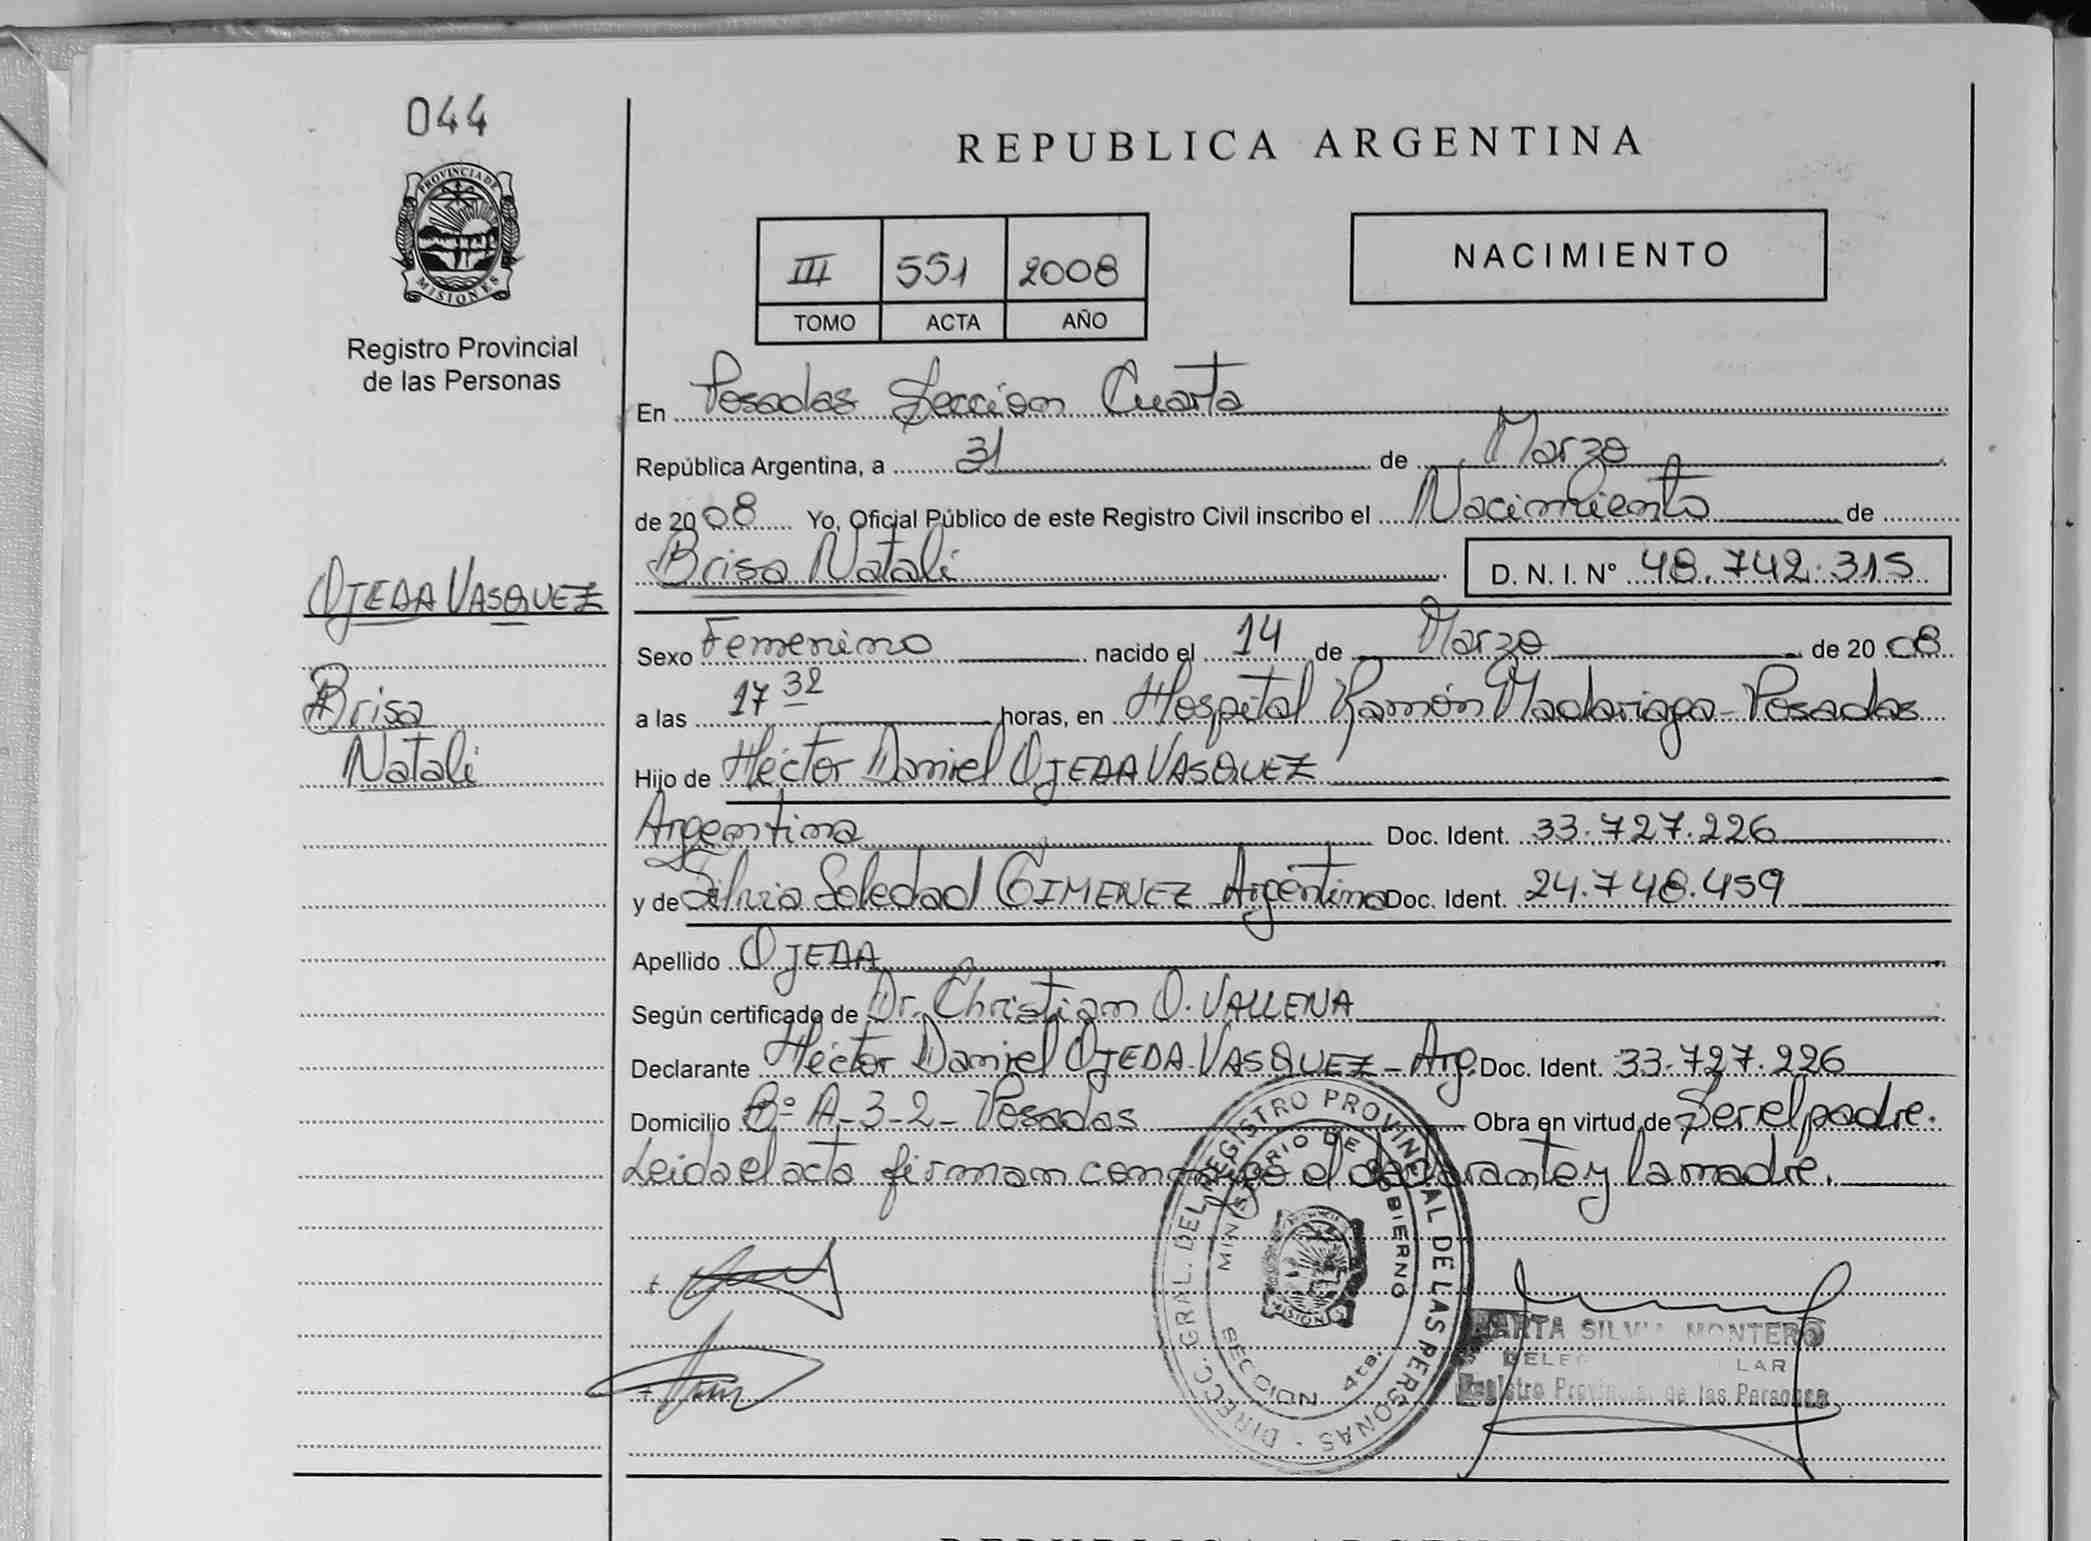 044
PROVINCIA DE
MISIONES
Registro Provincial
de las Personas
OJEDA VASQUEZ
Brisa
Natali
REPUBLICA ARGENTINA
III 551 2008
TOMO ACTA AÑO
NACIMIENTO
En Posadas Seccion Cuarta
República Argentina, a 31 de Marzo
de 2008 Yo, Oficial Público de este Registro Civil inscribo el Nacimiento de
Brisa Natali D. N. I. Nº 48.742.315
Sexo Femenino nacido el 14 de Marzo de 2008
a las 17 32 horas, en Hospital Ramón Madariaga - Posadas
Hijo de Héctor Daniel OJEDA VASQUEZ
Argentina Doc. Ident. 33.727.226
y de Silvia Soledad GIMENEZ Argentina Doc. Ident. 24.748.459
Apellido OJEDA
Según certificado de Dr. Christian O. VALLENA
Declarante Héctor Daniel OJEDA VASQUEZ - Arg. Doc. Ident. 33.727.226
Domicilio Bº A-3-2- Posadas Obra en virtud de Ser el padre.
Leida el acta firman conmigo el declarante y la madre.
DIRECC. GRAL. DEL REGISTRO PROVINCIAL DE LAS PERSONAS
MINISTERIO DE GOBIERNO
MISIONES
SECCION 4ta.
MARTA SILVIA MONTERO
Registro Provincial de las Personas
REPUBLICA ARGENTINA